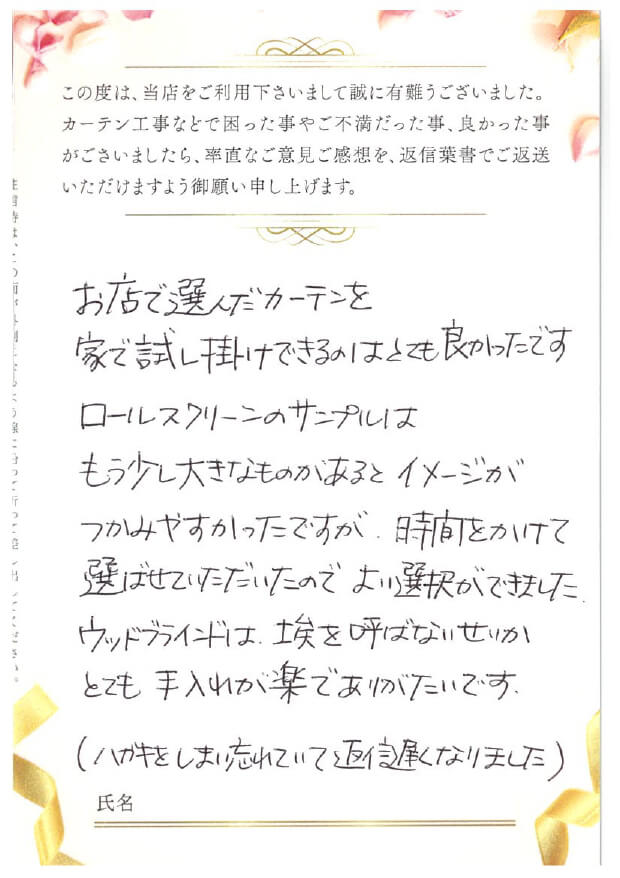 この度は、当店をご利用下さいまして誠に有難うございました。
カーテン工事などで困った事やご不満だった事、良かった事
がございましたら、率直なご意見ご感想を、返信葉書でご返送
いただけますよう御願い申し上げます。
お店で選んだカーテンを
家で試し掛けできるのはとても良かったです
ロールスクリーンのサンプルは
もう少し大きなものがあると イメージが
つかみやすかったですが、時間をかけて
選ばせていただいたので よい選択ができました。
ウッドブラインドは、埃を呼ばないせいか
とても 手入れが楽でありがたいです。
(ハガキをしまい忘れていて返信遅くなりました)
氏名